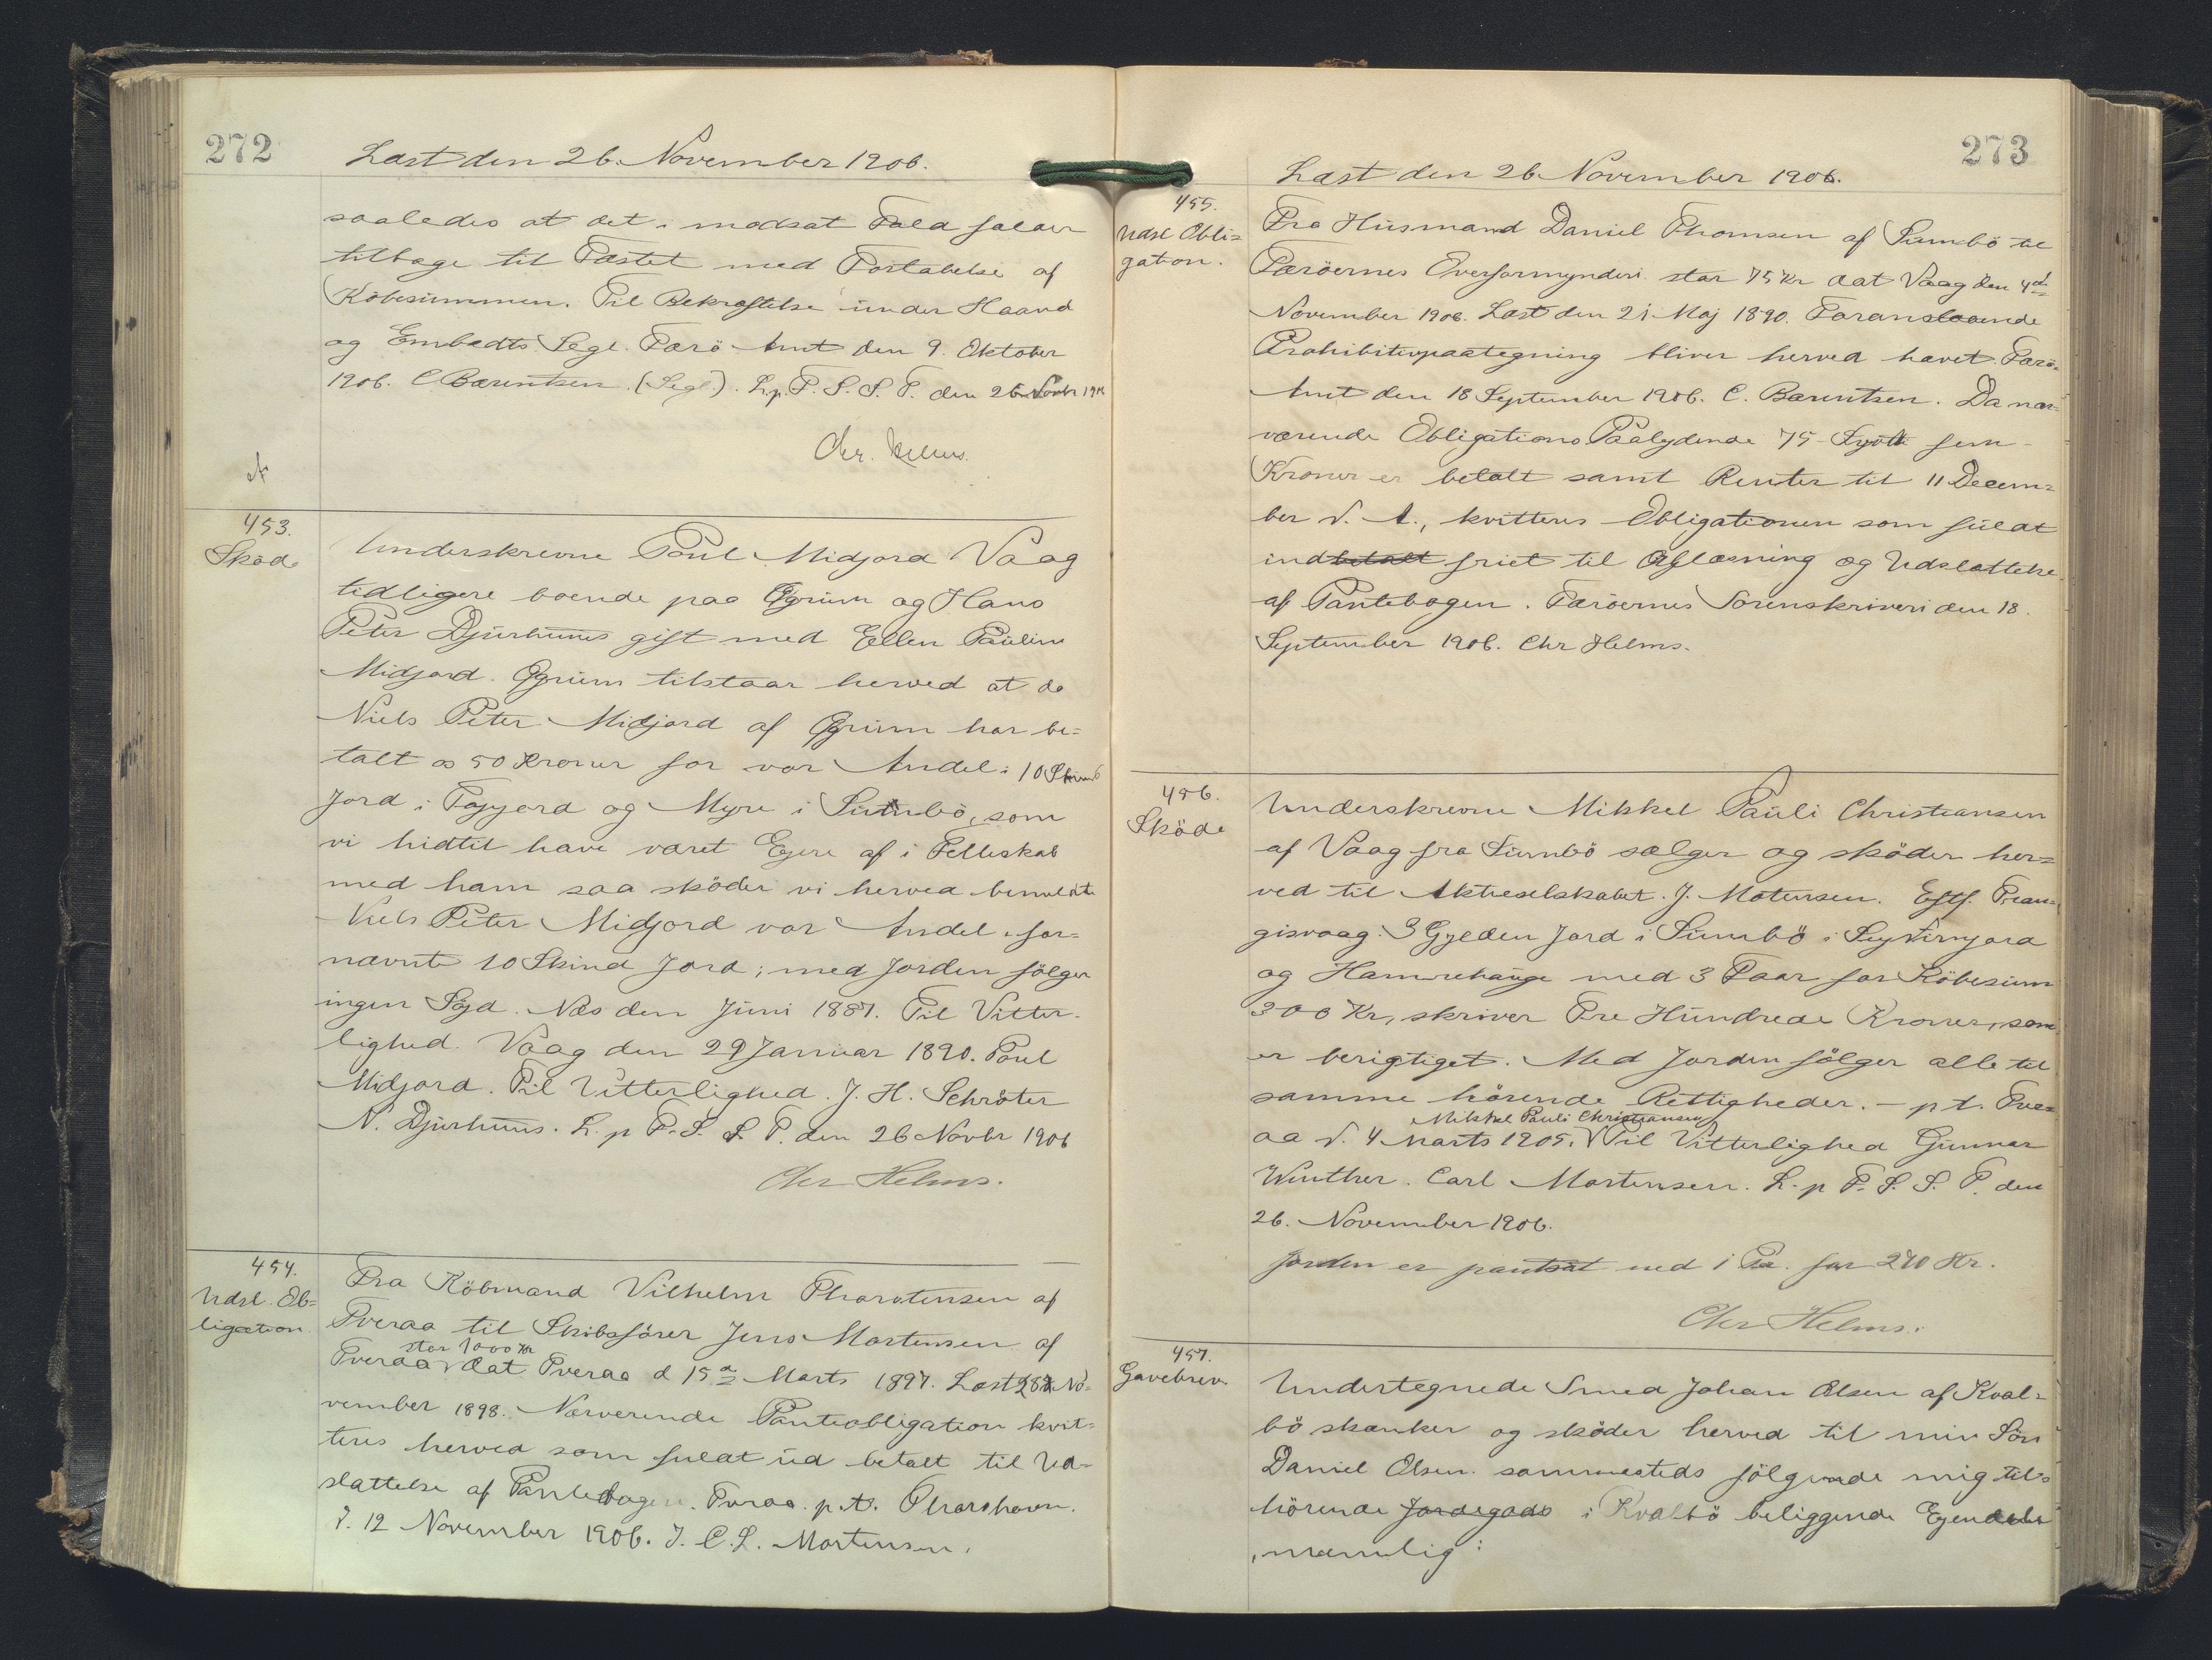 272
Læst den 26. November 1906.
saaledes at det i modsat Fald falder
tilbage til Fæstet med Fortabelse af
Köbesummen. Til Bekræftelse under Haand
og Embedts Segl. Færö Amt den 9. Oktober
1906. C Bærentsen. (Segl.). L. p. F. S. S. T. den 26 Novbr 1906
Chr. Helms.
453.
Sköde
Underskrevne Poul Midjord Vaag
tidligere boende paa Ögrum og Hans
Peter Djurhuus gift med Ellen Pauline
Midjord. Ögrum tilstaar herved at da
Niels Peter Midjord af Ögrum har be=
talt os 50 Kroner for vor Andel i 10 Skind
Jord i Toyjord og Myre i Sumbö, som
vi hidtil have været Ejere af i Felleskab
med ham saa sköder vi herved bemeldte
Niels Peter Midjord vor Andel i for=
nævnte 10 Skind Jord; med Jorden fölger
ingen Gjæld. Næs den Juni 1887. Til Vitter-
lighed. Vaag den 29 Januar 1890. Poul
Midjord. Til Vitterlighed. J. H. Schröter
N. Djurhuus. L. p F. S. S. T. den 26 Novbr 1906
Chr Helms.
454.
Udsl. Ob=
ligation
Fra Köbmand Vilhelm Thorstensen af
Tveraa til Skibsförer Jens Mortensen af
stor 1000 Kr
Tveraa dat Tveraa d 15de Marts 1897. Læst 28 No=
vember 1898. Nærværende Panteobligation kvit=
teres herved som fuldt ud betalt til Ud-
slættelse af Pantebogen. Tveraa. p. t. Thorshavn.
d. 12 November 1906. J. C. L. Mortensen.
273
Læst den 26. November 1906.
455.
Udsl Obli=
gation.
Fra Husmand Daniel Thomsen af Sumbö til
Færöernes Overformynderi stor 75 Kr dat Vaag den 4de
November 1906. Læst den 21 Maj 1890. Foranstaaende
Prohibitivpaategning bliver herved hævet. Færö=
Amt den 18 September 1906. C. Bærentsen. Da nær=
værende Obligations Paalydende 75 - Syvti fem -
Kroner er betalt samt Renter til 11 Decem=
ber d. A., kvitteres Obligationen som fuldt
indbetalt friet til Aflæsning og Udslættelse
af Pantebogen. Færöernes Sorenskriveri den 18.
September 1906. Chr Helms.
456.
Sköde
Underskrevne Mikkel Pauli Christiansen
af Vaag fra Sumbö sælger og sköder her=
ved til Aktieselskabet J. Motensen. Eftf. Tran=
gisvaag. 3 Gylden Jord i Sumbö i
og Hamrehauge med 3 Faar for Köbesum
300 Kr, skriver Tre Hundrede Kroner, som
er berigtiget. Med Jorden fölger alle til
samme hörende Rettigheder. - p t. Tve=
Mikkel Pauli Christiansen
aa d. 4 Marts 1905. Til Vitterlighed Gunnar
Winther. Carl Mortensen. L. p F. S. S. T. den
26. November 1906.
Jorden er pantsat med 1 Pr. for 270 Kr.
Chr Helms.
457.
Gavebrev.
Undertegnede Smed Johan Olsen af Kval=
bö skænker og sköder herved til min Sön
Daniel Olsen sammesteds fölgende mig til=
hörende Jordegods i Kvalbö beliggende Ejendele
nemlig: